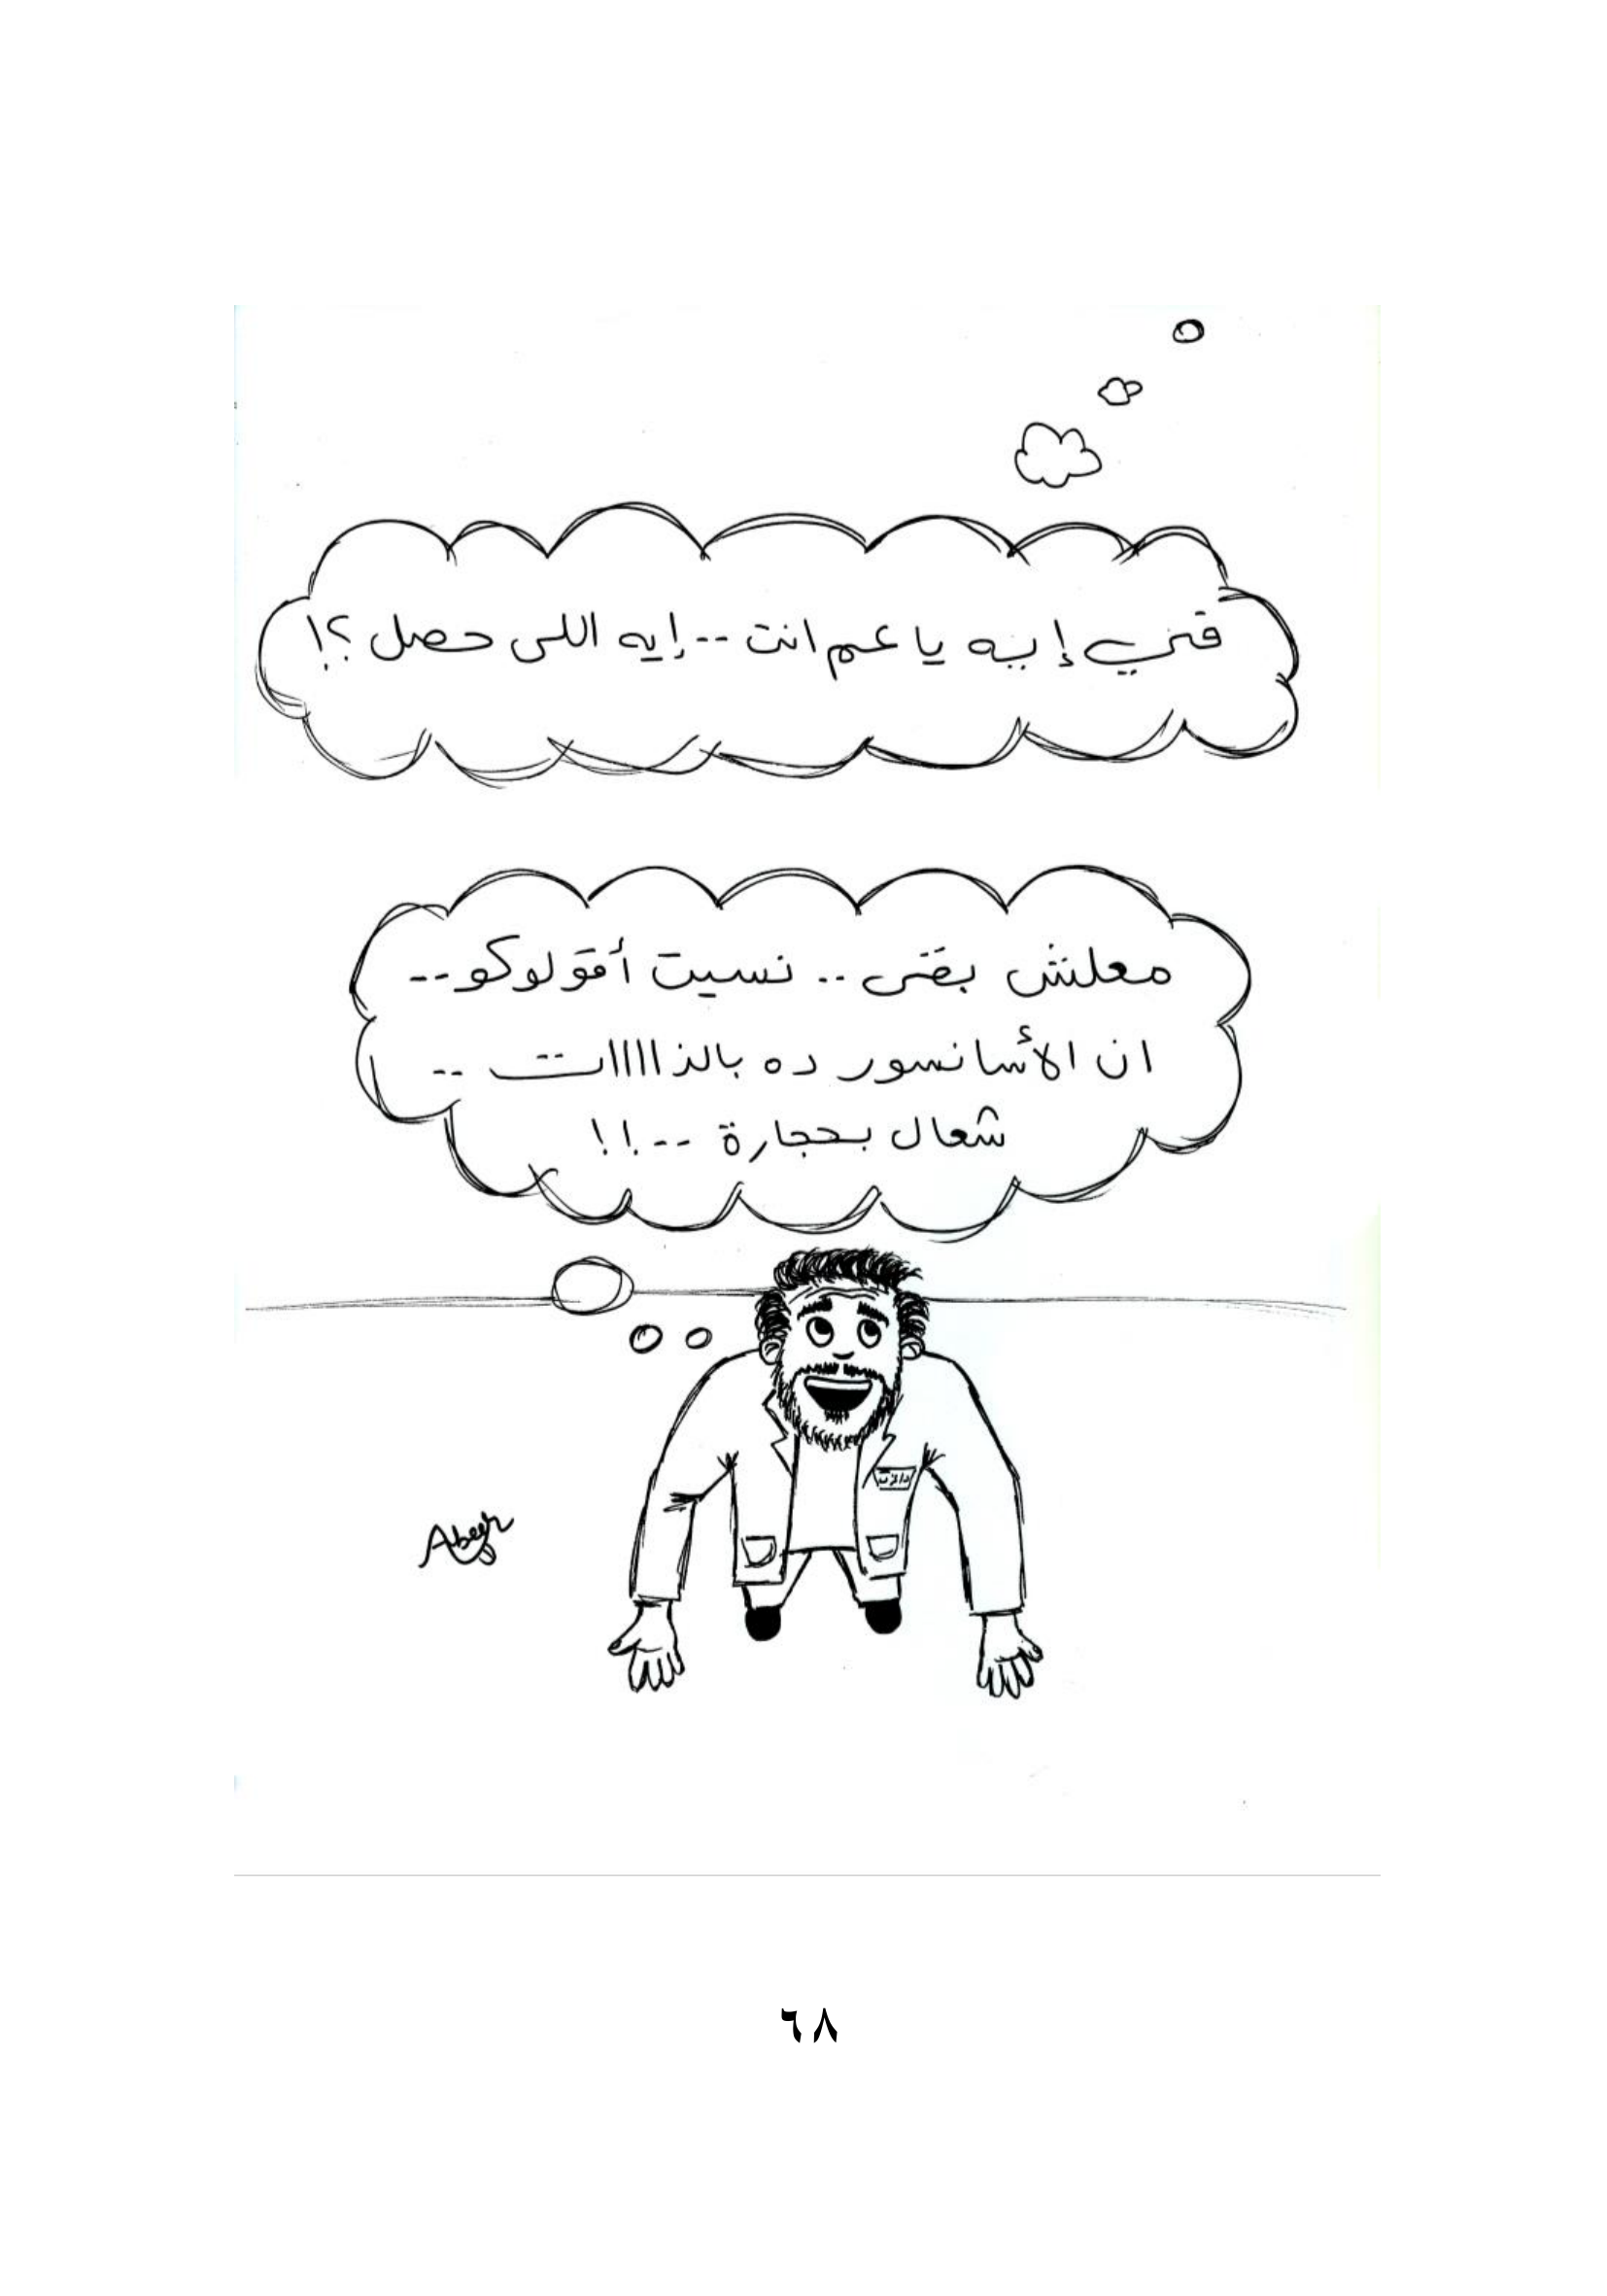 قنبي إيه يا عم انت -- إيه اللى حصل ؟!
معلش بقى .. نسيت أقولوكو --
ان الأسانسور ده بالذااااات --
شغال بحجارة --!!
دالاس
Abeer
٦٨